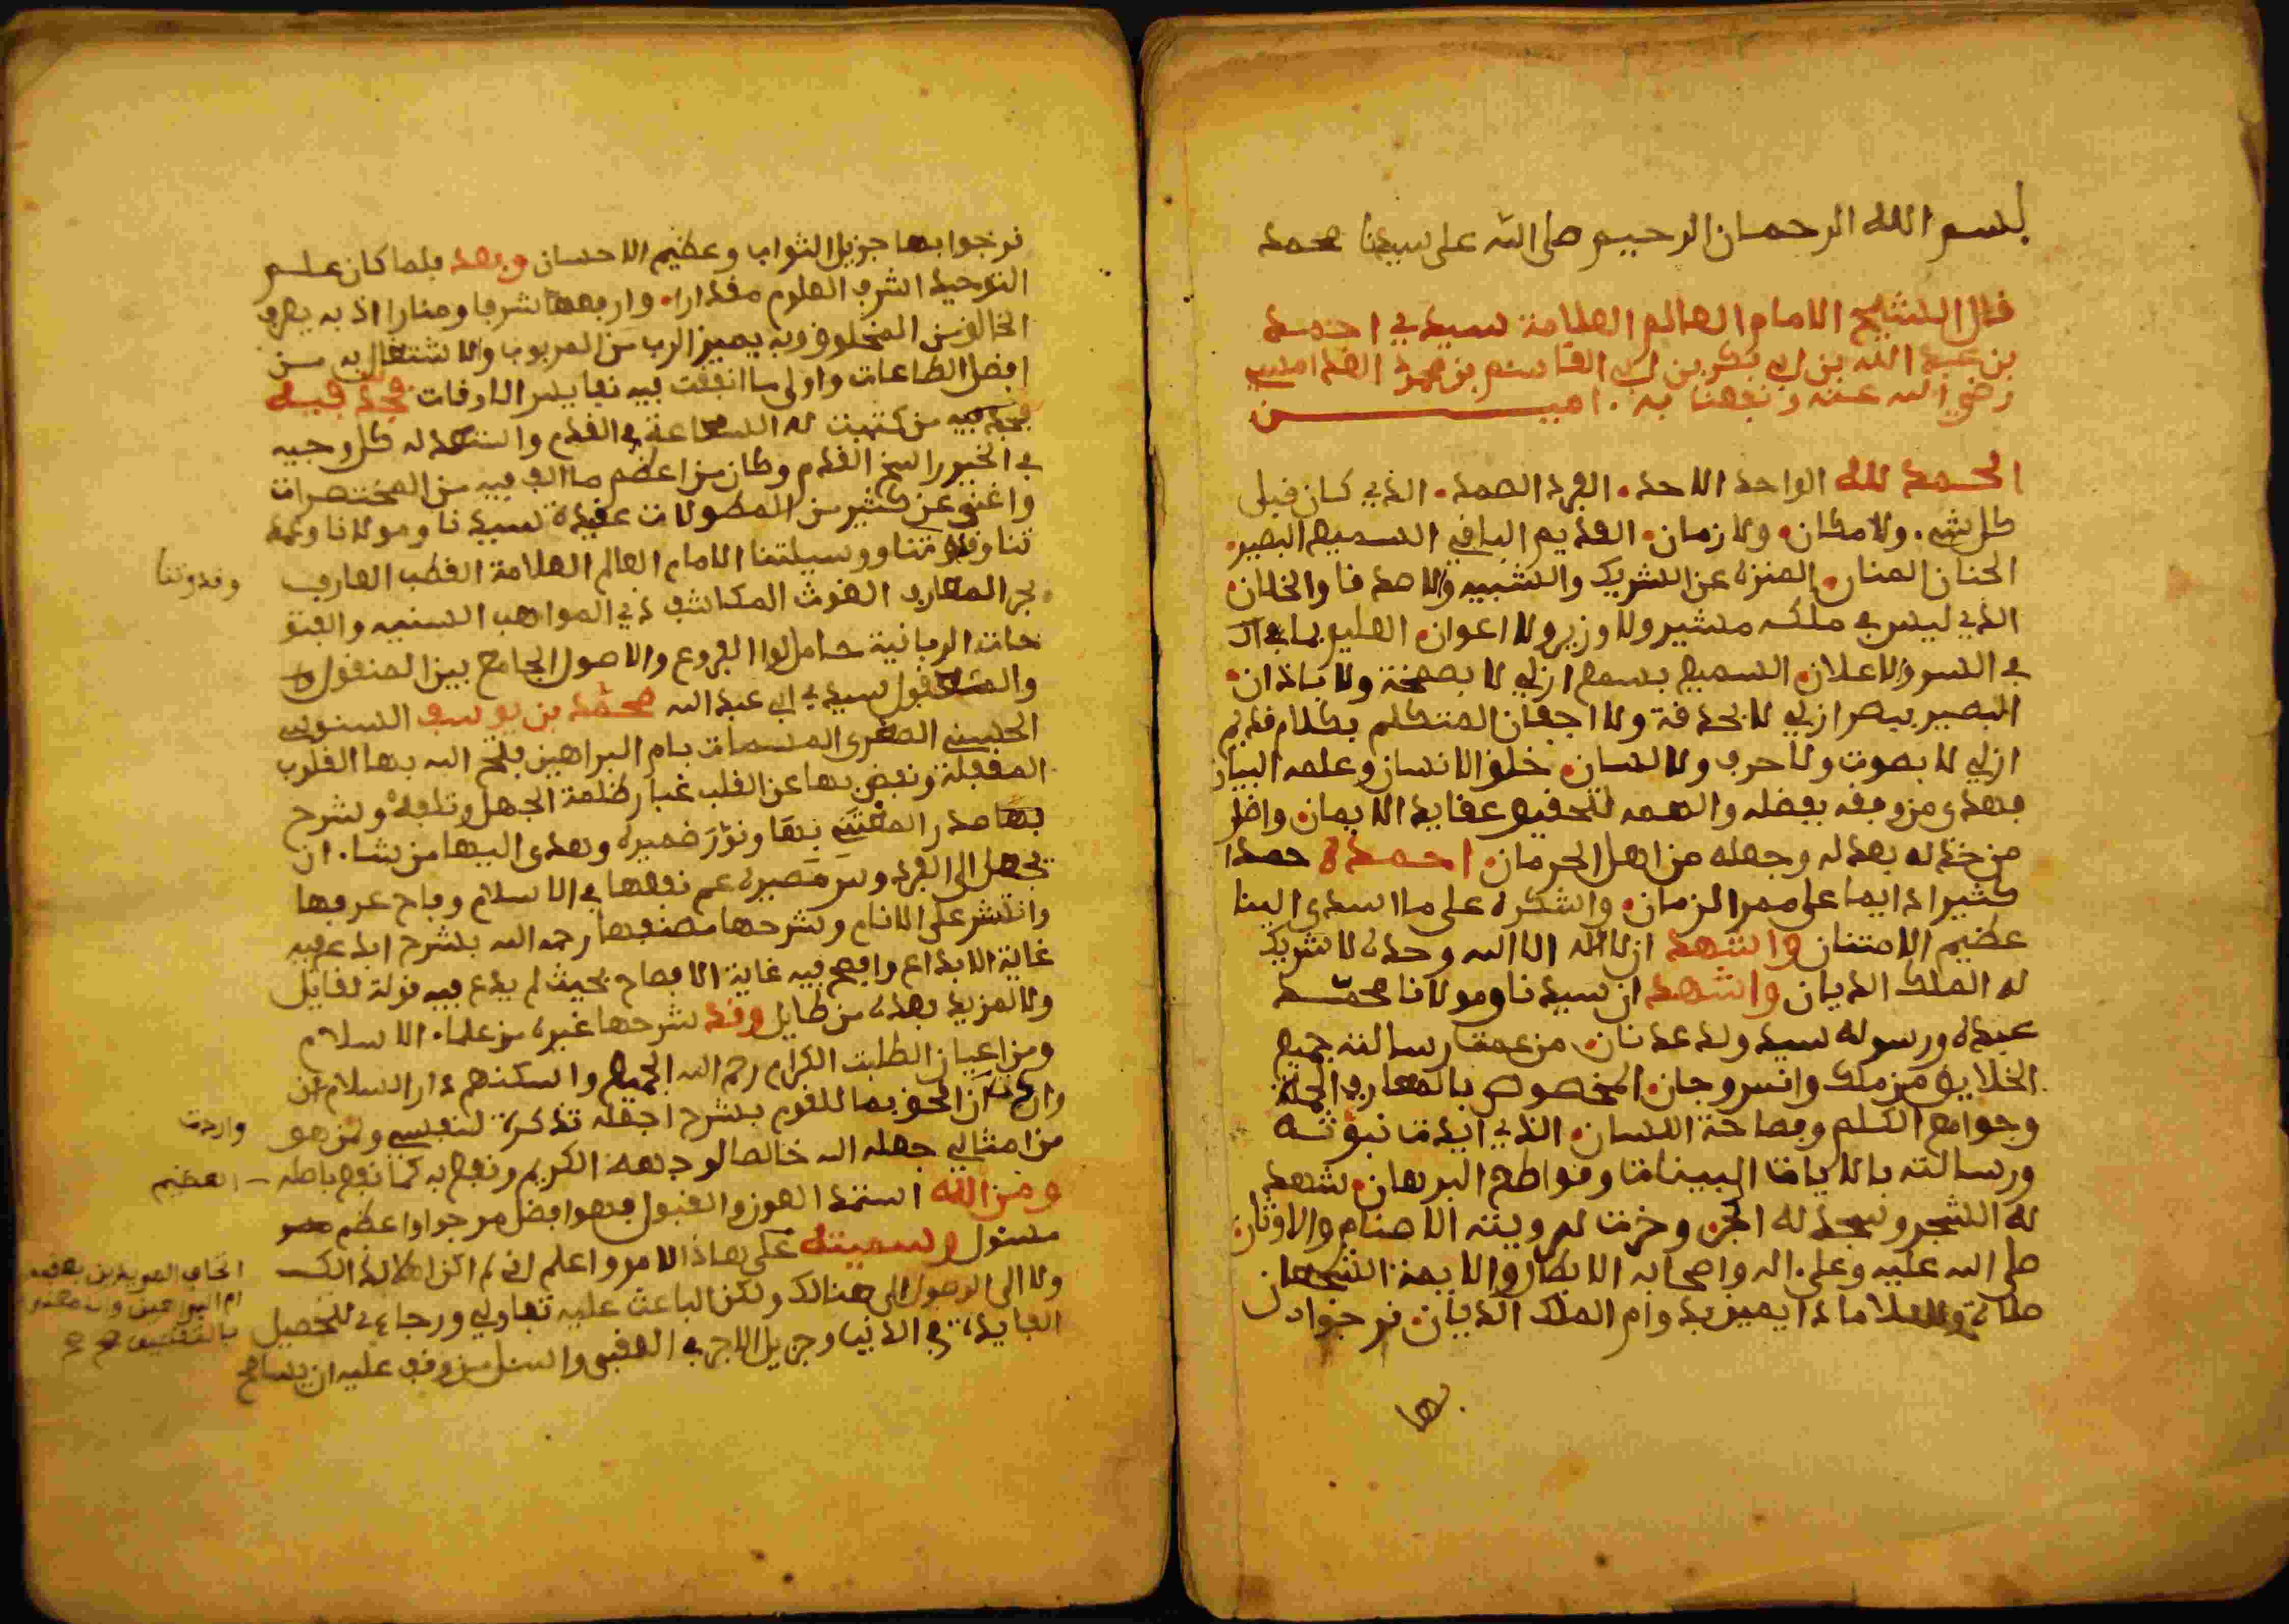 بسم الله الرحمان الرحيم صلى الله على سيدنا محمد
قال الشيخ الامام العالم العلامة سيدي احمد
بن عبد الله بن ابي بكر بن ابي القاسم بن محمد الغدامسي
رضي الله عنه ونفعنا به . امين
الحمد لله الواحد الاحد . الفرد الصمد . الذي كان قبل
كل شيء . ولا مكان ولا زمان القديم الباقي السميع البصير
الحنان المنان المنزه عن الشريك والشبيه والاصدفا والخلان
الذي ليس في ملكه مشير ولا وزير ولا اعوان العليم بما
في السر والاعلان السميع بسمع ازلي لا بصمخة ولا باذان
البصير ببصر ازلي لا بحدفة ولا اجفان المتكلم بكلام قديم
ازلي لا بصوت ولا حرف ولا لسان خلق الانسان وعلمه البيان
فهدى من وفقه بفضله والهمه لتحقيق عقايد الايمان واضل
من خذله بعدله وجعله من اهل الحرمان احمده حمدا
كثيرا دايما على ممر الزمان واشكره على ما اسدى الينا
عظيم الامتنان واشهد ان لا اله الا الله وحده لا شريك
له الملك الديان واشهد ان سيدنا ومولانا محمد
عبده ورسوله سيد ولد عدنان من عمت رسالته جميع
الخلايق من ملك وانس وجان المخصوص بالمعارف
وجوامع الكلم وفصاحة اللسان الذي ايدت نبوته
ورسالته بالايات البينات وقواطع البرهان شهد
له الشجر وسجد له وخرت لرويته الاصنام والاوثان
صلى الله عليه وعلى اله واصحابه الابطال والايمة الشجعان
صلاة وسلاما دايمين بدوام الملك الديان نرجوا
نرجوا بها جزيل الثواب وعظيم الاحسان وبعد فلما كان علم
التوحيد اشرف العلوم مقدارا وارفعها شرفا ومنارا اذ به يعرف
الخالق من المخلوق وبه يميز الرب من المربوب والاشتغال به من
افضل الطاعات واولى ما انفقت فيه نفايس الاوقات فجد فيه
فجد فيه من كتبت له السعادة في القدم واستعد له كل وجيه
في الخير راسخ القدم وكان من اعظم ما الف فيه من المختصرات
واغنى عن كثير من المطولات عقيدة سيدنا ومولانا وعمد
تنا وقدوتنا ووسيلتنا الامام العالم العلامة القطب العارف
وقدوتنا
بحر المعارف الغوث المكاشف ذي المواهب السنيه والفتو
حات الربانية حامل لوا الفروع والاصول الجامع بين المنقول
والمعقول سيدي ابي عبد الله محمد بن يوسف السنوسي
الحسني الصغرى المسمات بام البراهين فتح الله بها القلوب
المقفلة ونفض بها عن القلب غبار ظلمة الجهل وشرح
بها صدر المعتني بها ونور ضميره وهدى اليها من يشاء ان
عم نفعها في الاسلام وفاح عرفها
وانتشر على الانام وشرحها مصنفها رحمه الله بشرح ابدع فيه
غاية الابداع وافصح فيه غاية الافصاح بحيث لم يدع فيه قولة لقايل
ولا لمزيد بعده من طايل وقد شرحها غيره من علماء الاسلام
ومن اعيان الطلبة الكرام رحم الله الجميع واسكنهم دار السلام
واردت ان الحق بما للقوم بشرح اجعله تذكرة لنفسي ولمن هو
واردت
من امثالي جعله الله خالصا لوجهه الكريم ونفع به كما نفع باصله
العظيم
ومن الله استمد العون والقبول فهو افضل مرجوا واعظم
مسئول وسميته على هذا الامر واعلم اني لم اكن اهلا لذالك
ولا الى الوصول الى هنالك ولكن الباعث عليه تفاولي ورجاءي لتحصيل
الفايدة في الدنيا وجزيل الاجر في العقبى واسئل من وقف عليه ان يسامح